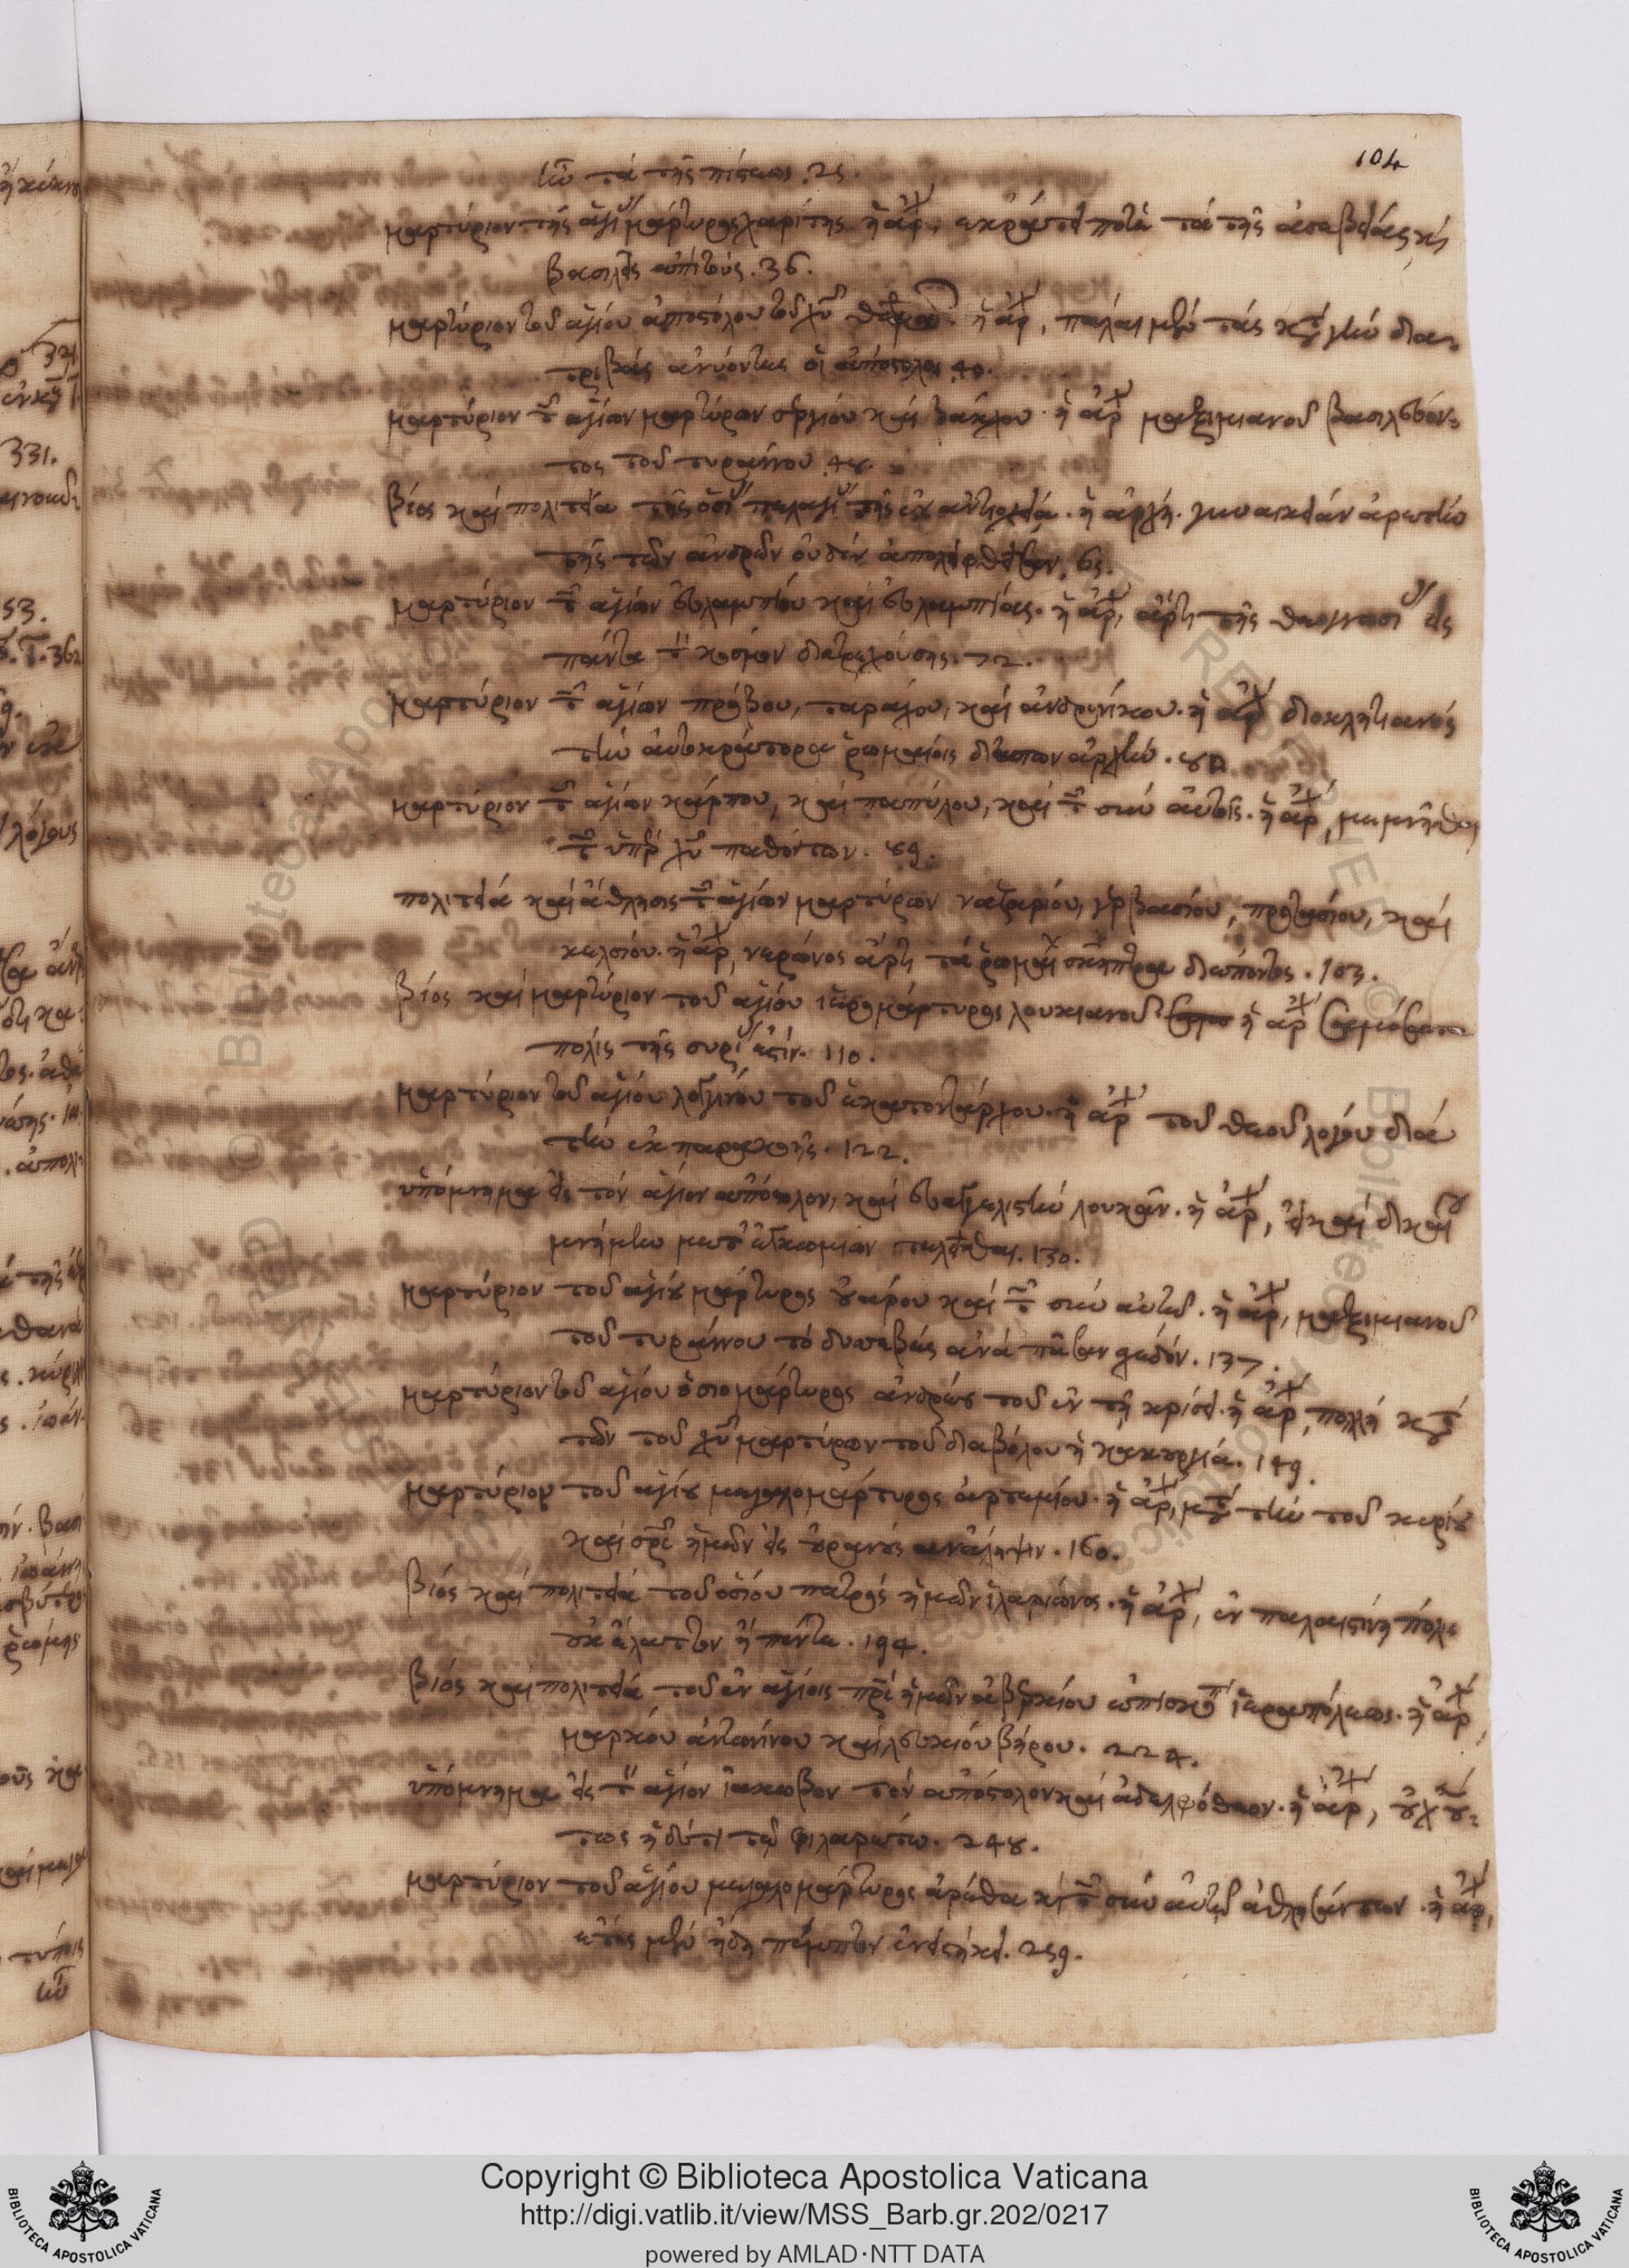 104
τὰ τῆς πίστεως. 25.
μαρτύριον τῆς ἁγί μάρτυρος χαριτίνης ἡ ἀρχ, ἐκράτει ποτὲ τὰ τῆς ἀσεβείας κὶ
βασιλεῖς ἀπίστους. 36.
μαρτύριον τοῦ ἁγίου ἀποστόλου τοῦ χῦ θωμᾶ. ἡ ἀρχ, πάλαι μὲν τὰς κτ γῆν δια-
τριβὰς ἀνύοντες οἱ ἀπόστολοι 40.
μαρτύριον τ ἁγίων μαρτύρων σεργίου καὶ βάκχου. ἡ ἀρχ μαξιμιανοῦ βασιλεύον-
τος τοῦ τυράννου. 48.
βίος καὶ πολιτεία τῆς ὁσί πελαγί τῆς ἐν ἀντιοχεία. ἡ ἀρχὴ. γυναικείαν ἀρετὴν
τῆς τῶν ἀνδρῶν οὐδὲν ἀπολειφθεῖσαν. 63.
μαρτύριον τ ἁγίων εὐλαμπίου καὶ εὐλαμπίας. ἡ ἀρχ, ἄρτι τῆς θεογνωσί εἰς
πάντα τ κόσμον διατρεχούσης. 72.
μαρτύριον τ ἁγίων πρόβου, ταράχου, καὶ ἀνδρονίκου. ἡ ἀρχ διοκλητιανὸς
τὴν αὐτοκράτορα ῥωμαίοις διέπων ἀρχὴν.
μαρτύριον τ ἁγίων κάρπου, καὶ παπύλου, καὶ τ σὺν αὐτοῖς. ἡ ἀρχ, μεμνῆσθαι
τ ὑπὲρ χῦ παθόντων. 89.
πολιτεία καὶ ἄθλησις τ ἁγίων μαρτύρων ναζαρίου, γερβασίου, προτασίου, καὶ
κελσίου. ἡ ἀρχ, νέρωνος ἄρτι τὰ ῥωμαί σκῆπτρα διέποντος. 103.
βίος καὶ μαρτύριον τοῦ ἁγίου ἱερομάρτυρος λουκιανοῦ ἡ ἀρχ σαμόσατα
πόλις τῆς συρί ἐστίν. 110.
μαρτύριον τοῦ ἁγίου λογγίνου τοῦ ἑκατοντάρχου. ἡ ἀρχ τοῦ θεοῦ λόγου διὰ
τὴν ἐκ παρακοῆς. 122.
ὑπόμνημα εἰς τὸν ἅγιον ἀπόστολον, καὶ εὐαγγελιστὴν λουκᾶν. ἡ ἀρχ, εἰ καὶ δικαί
μνήμην μετ ἐγκωμίων τελεῖσθαι. 130.
μαρτύριον τοῦ ἁγίου μάρτυρος οὐάρου καὶ τ σὺν αὐτῷ. ἡ ἀρχ, μαξιμιανοῦ
τοῦ τυράννου τὸ δυσσεβὲς ἀνὰ πᾶσαν σχεδόν. 137.
μαρτύριον τοῦ ἁγίου ὁσιομάρτυρος ἀνδρέου τοῦ ἐν τῇ κρίσει. ἡ ἀρχ, πολλὴ κτ
τῶν τοῦ χῦ μαρτύρων τοῦ διαβόλου ἡ κακουργία. 149.
μαρτύριον τοῦ ἁγίου μεγαλομάρτυρος ἀρτεμίου. ἡ ἀρχ, μτ τὴν τοῦ κυρίου
καὶ σρς ἡμῶν εἰς οὐρανοὺς ἀνάληψιν. 160.
βίος καὶ πολιτεία τοῦ ὁσίου πατρὸς ἡμῶν ἱλαρίωνος. ἡ ἀρχ, ἐν παλαιστίνη πόλις
οὐκ ἐλάττων ἢ πέντε. 194.
βίος καὶ πολιτεία τοῦ ἐν ἁγίοις πρς ἡμῶν ἀβερκίου ἐπισκόπ ἱεραπόλεως. ἡ ἀρχ,
μάρκου ἀντωνίνου καὶ λευκίου βήρου. 224.
ὑπόμνημα εἰς τ ἅγιον ἰάκωβον τὸν ἀπόστολον καὶ ἀδελφόθεον. ἡ ἀρχ, οὐχ οὕ-
τως ἡδύ τι τῷ φιλαρέτῳ. 248.
μαρτύριον τοῦ ἁγίου μεγαλομάρτυρος ἀρέθα κὶ τ σὺν αὐτῷ ἀθλησάντων. ἡ ἀρχ,
ἔτος μὲν ἤδη πέμπτον ἐνειστήκει. 259.
Copyright © Biblioteca Apostolica Vaticana
http://digi.vatlib.it/view/MSS_Barb.gr.202/0217
powered by AMLAD·NTT DATA
BIBLIOTECA APOSTOLICA VATICANA
BIBLIOTECA APOSTOLICA VATICANA